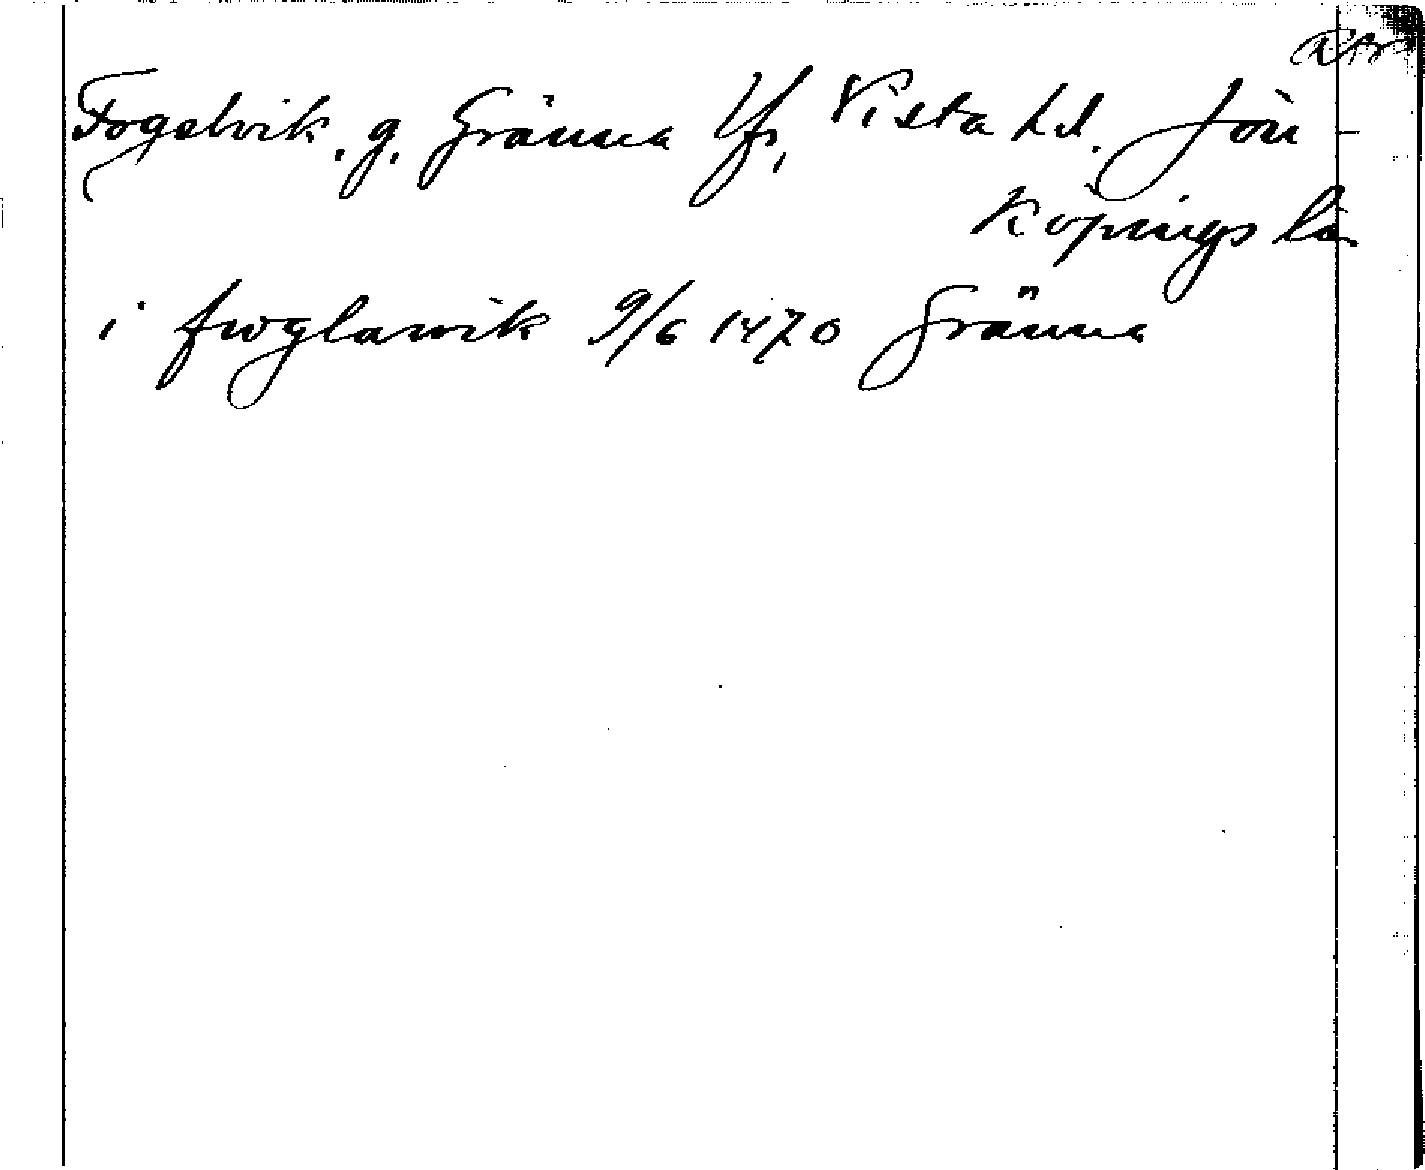 Fogelvik, g. Gränna lfs, Vista hd. Jön-
köpings län
i fwglawik 9/6 1470 Gränna